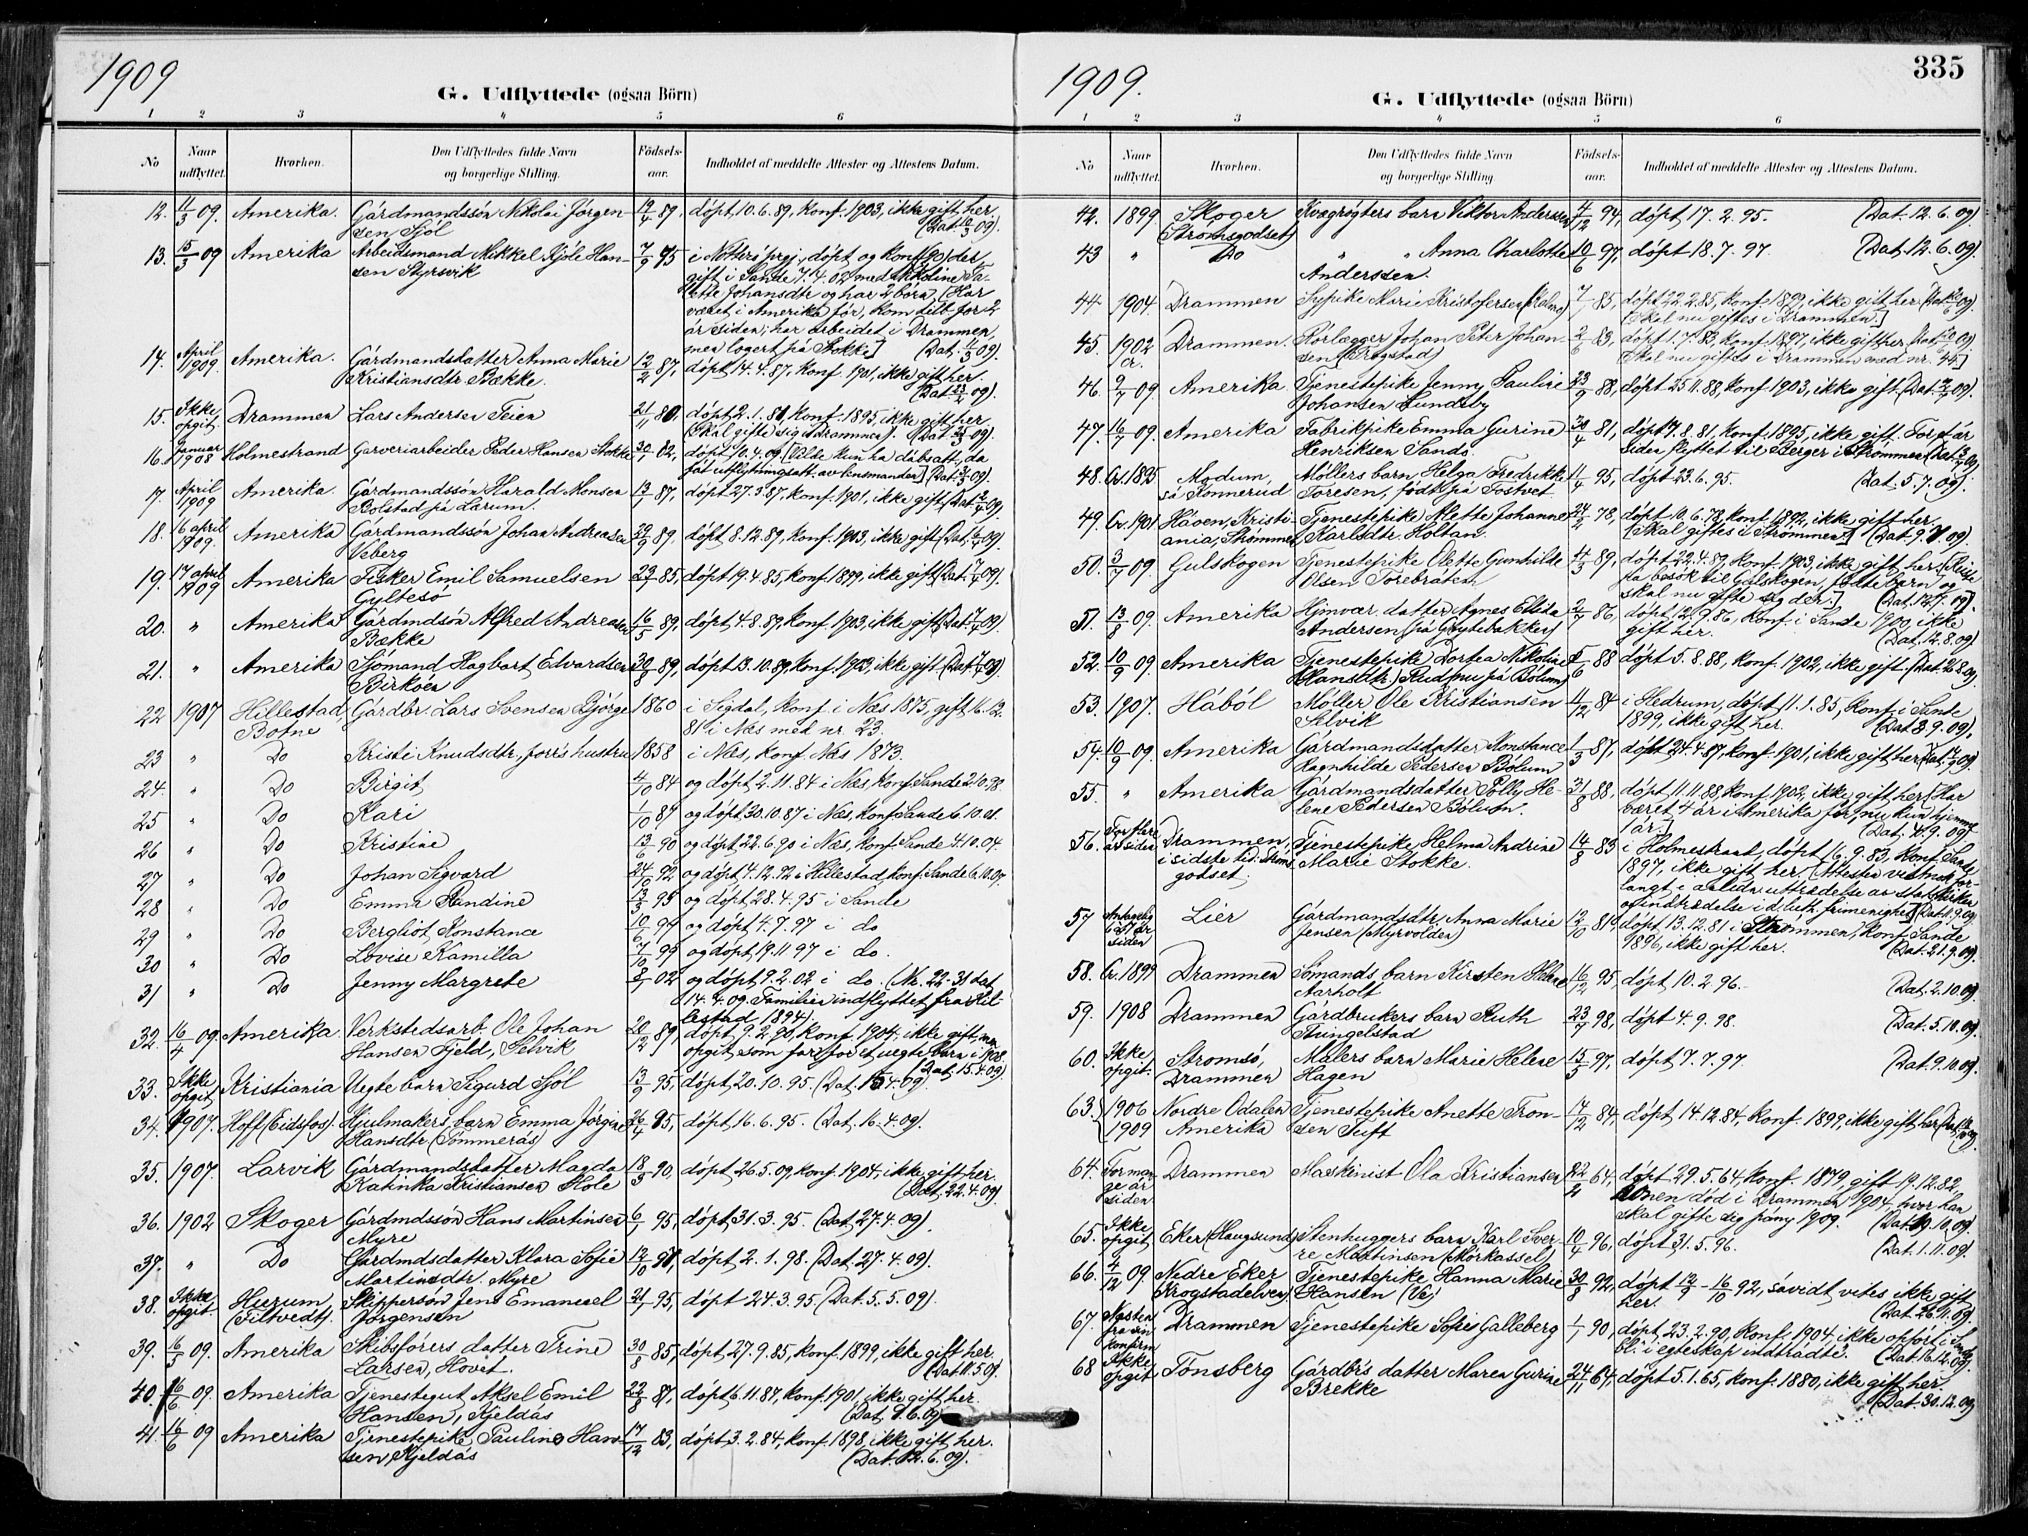 1909
G. Udflyttede (ogsaa Börn)
1 2 3 4 5 6
No Naar udflyttet. Hvorhen. Den Udflyttedes fulde Navn og borgerlige Stilling. Födsels-aar. Indholdet af meddelte Attester og Attestens Datum.
12. 11/3 09. Amerika. Gårdmandssön Nikolai Jörgen- 87, döpt 10.6.87, konf. 1903, ikke gift her
sen Sjöl (Dat. 09).
13. 15/3 09 Amerika Arbeidsmand Mikkel Kjöle Han- 7/9 75 i Nötterö prgj., döpt og konf. der
sen Styrsvik gift i Sande 7.4.02 med Nikoline
Johansdtr og har 2 börn, [Har
været i Amerika för, kom tilb. for 2
år siden; har arbeidet i Drammen
men logert på Stokke] (Dat. 11/3 09).
14. April 1909. Amerika. Gårdmandsdatter Anna Marie 12/2 87, döpt 14.4.87, konf 1901, ikke gift her.
Kristiansdtr Bække. (Dat. 09).
15. Ikke opgit Drammen Lars Andersen Teien 21/11 80 döpt 2.1.81, konf. 1895, ikke gift her.
(Skal gifte sig i Drammen). (Dat. 09).
16. Januar 1908 Holmestrand Garveriarbeider Peder Hansen Stokke 30/1 82, döpt 10.4.09. [Vilde kun ha dåbsatt., da
fåt utflytningsatt. av lensmanden] (Dat. 09).
17. April 1909 Amerika. Gårdmandssön Harald Monsen 13/1 87, döpt 27.3.87, konf. 1901, ikke gift (Dat. 09).
Bolstad på Lærum.
18. 16 april 1909. Amerika Gårdmandssön Johan Andreasen 29/9 89. döpt 8.12.89, konf. 1903, ikke gift (Dat. 09).
Veberg
19. 17 april 1909 Amerika Fisker Emil Samuelsen 85, döpt 19.4.85, konf. 1899, ikke gift (Dat. 09).
Gyltesö
20. " Amerika Gårdmdsön Alfred Andreasen 16/5 89, döpt 4.8.89, konf. 1903, ikke gift (Dat. 09).
Bække
21. " Amerika Sjömand Hagbart Edvardsen 30/8 89, döpt 13.10.89, konf. 1903, ikke gift (Dat. 09).
Birköen
22 1907 Hillestad, Gårdbr. Lars Svensen Bjørge 1860 i Sigdal, konf. i Næs 1875, gift 16.12.
Botne 81 i Næs med nr. 23.
23 " Do Kristi Knudsdtr, forr's hustru 1858 i Næs, konf. Næs 1873.
24. " Do Birgit 4/10 84 og döpt 2.11.84 i Næs, konf. Sande 2.10.98.
25 " Do Kari 1/10 87 og döpt 30.10.87 i Næs, konf. Sande 6.10.01.
26 " Do Kristine 13/6 90 og döpt 22.6.90 i Næs, konf. Sande 4.10.04.
27 " Do Johan Sigvard 24/10 92 og döpt 4.12.92 i Hillestad, konf. Sande 6.10.07.
28 " Do Emma Randine 13/3 95 og döpt 28.4.95 i Sande
29 " Do Bergliot Konstance 10/6 97 og döpt 4.7.97 i do
30 " Do Lovise Kamilla 7/10 99 og döpt 19.11 97 i do.
31 " Do Jenny Margrete 8/1 02 og döpt 9.2.02 i do. (Nr. 22-31 dat
14.4.09. Familien indflyttet fra Hil-
lestad 1894).
32. 16/4 09 Amerika Verkstedsarb. Ole Johan 20/12 89, döpt 9.2.90, konf. 1904, ikke gift, men
Hansen Fjeld, Selvik opgit som far for et uegte barn i 1908.
(Dat. 15.4.09).
33. Ikke opgit Kristiania Uegte barn Sigurd Sjöl 13/9 95, döpt 20.10.95. (Dat. 15.4.09).
34. 1907. Hoff (Eidsfos). Hjulmakers barn Emma Jörgine 26/4 95, döpt 16.6.95. (Dat. 16.4.09).
Hansdtr (Sommerås)
35. 1907. Larvik Gårdmandsdatter Magda 18/3 90, döpt 26.5.09, konf. 1904, ikke gift her.
Katinka Kristiansen Hole (Dat. 22.4.09).
36. 1902 Skoger Gårdmdssön Hans Martinsen 6/1 95, döpt 31.3.95. (Dat. 27.4.09).
Myre
37. " Do Gårdmdsdatter Klara Sofie 12/10 97, döpt 2.1.98. (Dat. 27.4.09).
Martinsdtr. Myre
38. Ikke opgit. Hurum Skippersön Jens Emanuel 21/1 95, döpt 24.3.95 (Dat. 5.5.09).
(Filtvedt). Jörgensen
39. 6/5 09. Amerika Skibsförers datter Trine 30/8 85, döpt 27.9.85, konf. 1899, ikke gift her
Larsen, Hovet. (Dat. 11.5.09.
40. 16/6 09. Amerika Tjenestegut Aksel Emil 22/8 87, döpt 6.11.87, konf. 1901, ikke gift her.
Hansen, Kjeldås (Dat. 9.6.09).
41. 16/6 09 Amerika Tjenestepike Pauline Han- 17/12 83, döpt 3.2.84, konf. 1898, ikke gift her.
sen, Kjeldås (Dat. 12.6.09).
1909.
335
G. Udflyttede (ogsaa Börn)
1 2 3 4 5 6
No Naar udflyttet. Hvorhen. Den Udflyttedes fulde Navn og borgerlige Stilling. Födsels-aar. Indholdet af meddelte Attester og Attestens Datum.
42. 1899 Skoger Kvægrögters barn Viktor Anderssen 4/12 94, döpt 17.2.95. (Dat. 12.6.09)
Strömsgodset)
43 " Do " " Anna Charlotte 10/6 97, döpt 18.7.97. (Dat. 12.6.09).
Anderssen.
44. 1904. Drammen Sypike Marie Kristofersen 7/1 85, döpt 22.2.85, konf. 1899, ikke gift her
[Skal nu giftes i Drammen.]
45. 1902 Drammen. Rörlægger Johan Peter Johan- 2/6 83, döpt 1.7.83, konf. 1897, ikke gift her,
sen (Krogstad) [Skal nu giftes i Drammen med nr. 44.]
46. 9/7 09. Amerika Tjenestepike Jenny Pauline 23/9 88, döpt 25.11.88, konf 1903, ikke gift (Dat. 09).
Johansen Lundeby
47. 16/7 09. Amerika Fabrikpike Emma Gurine 30/4 81, döpt 7.8.81, konf. 1895, ikke gift. For et år
Henriksen Sandö. siden flyttet til Berger i Strömmen
48. Ca. 1895 Modum, Möllers barn Helga Fredrikke 11/4 95, döpt 23.6.95. (Dat. 5.7.09).
så Konnerud Toresen, født på Fostvet
49. Ca. 1901 Håven, Kristi- Tjenestepike Mette Johanne 24/2 78, döpt 10.6.78, konf. 1892, ikke gift her,
ania, Strömmen Karlsdtr Holtan. (Skal giftes i Strömmen) (Dat. 9.7.09).
50. 3/7 09. Gulskogen Tjenestepike Olette Gunhilde 4/3 89, döpt 22.4.89, konf. 1903, ikke gift her. [Reiste
Olsen Torebråten på besök til Gulskogen, fødte barn og
skal nu gifte sig der.] (Dat. 12.7.09].
51. 13/8 09. Amerika Hjmvær. datter Agnes Elida 2/7 86, döpt 12.9.86, konf. i Sande 1900, ikke
Andersen (på Gøytebakken) gift her. (Dat. 12.8.09)
52. 10/9 09. Amerika Tjenestepike Dorfea Nikoline 5/6 88 döpt 5.8.88, konf. 1902, ikke gift. (Dat. 26.8.09.
Hansdtr. Rud (nu på Bölum)
53. 1907. Håböl Möller Ole Kristiansen 11/12 84 i Hedrum, döpt 11.1.85, konf. i Sande
Selvik 1899, ikke gift her. (Dat. 8.9.09).
54. 10/9 09. Amerika Gårdmandsdatter Konstance 1/3 87, döpt 24.4.87, konf. 1901, ikke gift her
Ragnhilde Pedersen Bölum
55. " Amerika Gårdmandsdatter Polly He- 31/8 88. döpt 11.11.88, konf. 1902, ikke gift her [Har
lene Pedersen Bölum. været 4 år i Amerika før, nu kun hjemme
1 år.] (Dat. 4.9.09)
56. For flere år siden Drammen, Tjenestepike Helma Andrine 14/8 83 i Holmestrand, döpt 16.9.83, konf. Sande
i sidste tid: Ströms- Marie Stokke. 1897, ikke gift her. (Attesten vistnok for-
godset. langt i anledn. uttrædelse av statskirken
og indtrædelse i d. luth. frimenighed) (Dat. 9.09
57 Antagelig år siden Lier Gårdmandsdtr Anna Marie 12/10 81, döpt 13.12.81 i Strömmen, konf. Sande
Jensen (Myrvolden) 1896, ikke gift her. (Dat. 21.9.09).
58. Ca. 1899 Drammen Sömands barn Kirsten Helene 16/12 95, döpt 10.2.96. (Dat. 2.10.09).
Aarholt
59. 1908 Drammen Gårdbrukers barn Ruth 23/7 98, döpt 4.9.98. (Dat. 5.10.09).
Thingelstad
60. Ikke opgit. Strömsö, Målers barn Marie Helene 15/5 97, döpt 7.7.97. (Dat. 9.10.09).
Drammen Hagen
63. 1906 Nordre Odalen Tjenestepike Anette Tron- 14/12 84, döpt 14.12.84, konf. 1899, ikke gift her
1909 Amerika sen Tuft
64. For man- ge år siden Drammen Maskinist Ola Kristiansen 22/2 64, döpt 29.5.64, konf. 1879, gift 19.12.82,
konen död i Drammen 1904, hvor han
skal gifte sig påny 1909. (Dat. 19.10.09).
65. Ikke opgit Eker (Haugsund) Stenhuggers barn Karl Sver- 10/4 96, döpt 31.5.96.
re Martinsen (Mörkassel) (Dat. 1.11.09).
66. 4/12 09. Nedre Eker Tjenestepike Hanna Marie 30/8 92, döpt 16/10 92, såvidt vites ikke gift
Krogstadelven Hansen (Vå) her. (Dat. 26.11.09).
67. Næsten fra sin konfirm. Drammen Tjenestepike Sofie Galleberg 1/1 90, döpt 23.2.90, konf. 1904, ikke opfört i Sande
bl. i egteskap indtrådte. (Dat. 16.12.09).
68 Ikke opgit Tönsberg Gårdbr's datter Maren Gurine 24/11 64, döpt 5.1.65, konf. 1880, ikke gift her.
Brekke (Dat. 30.12.09)